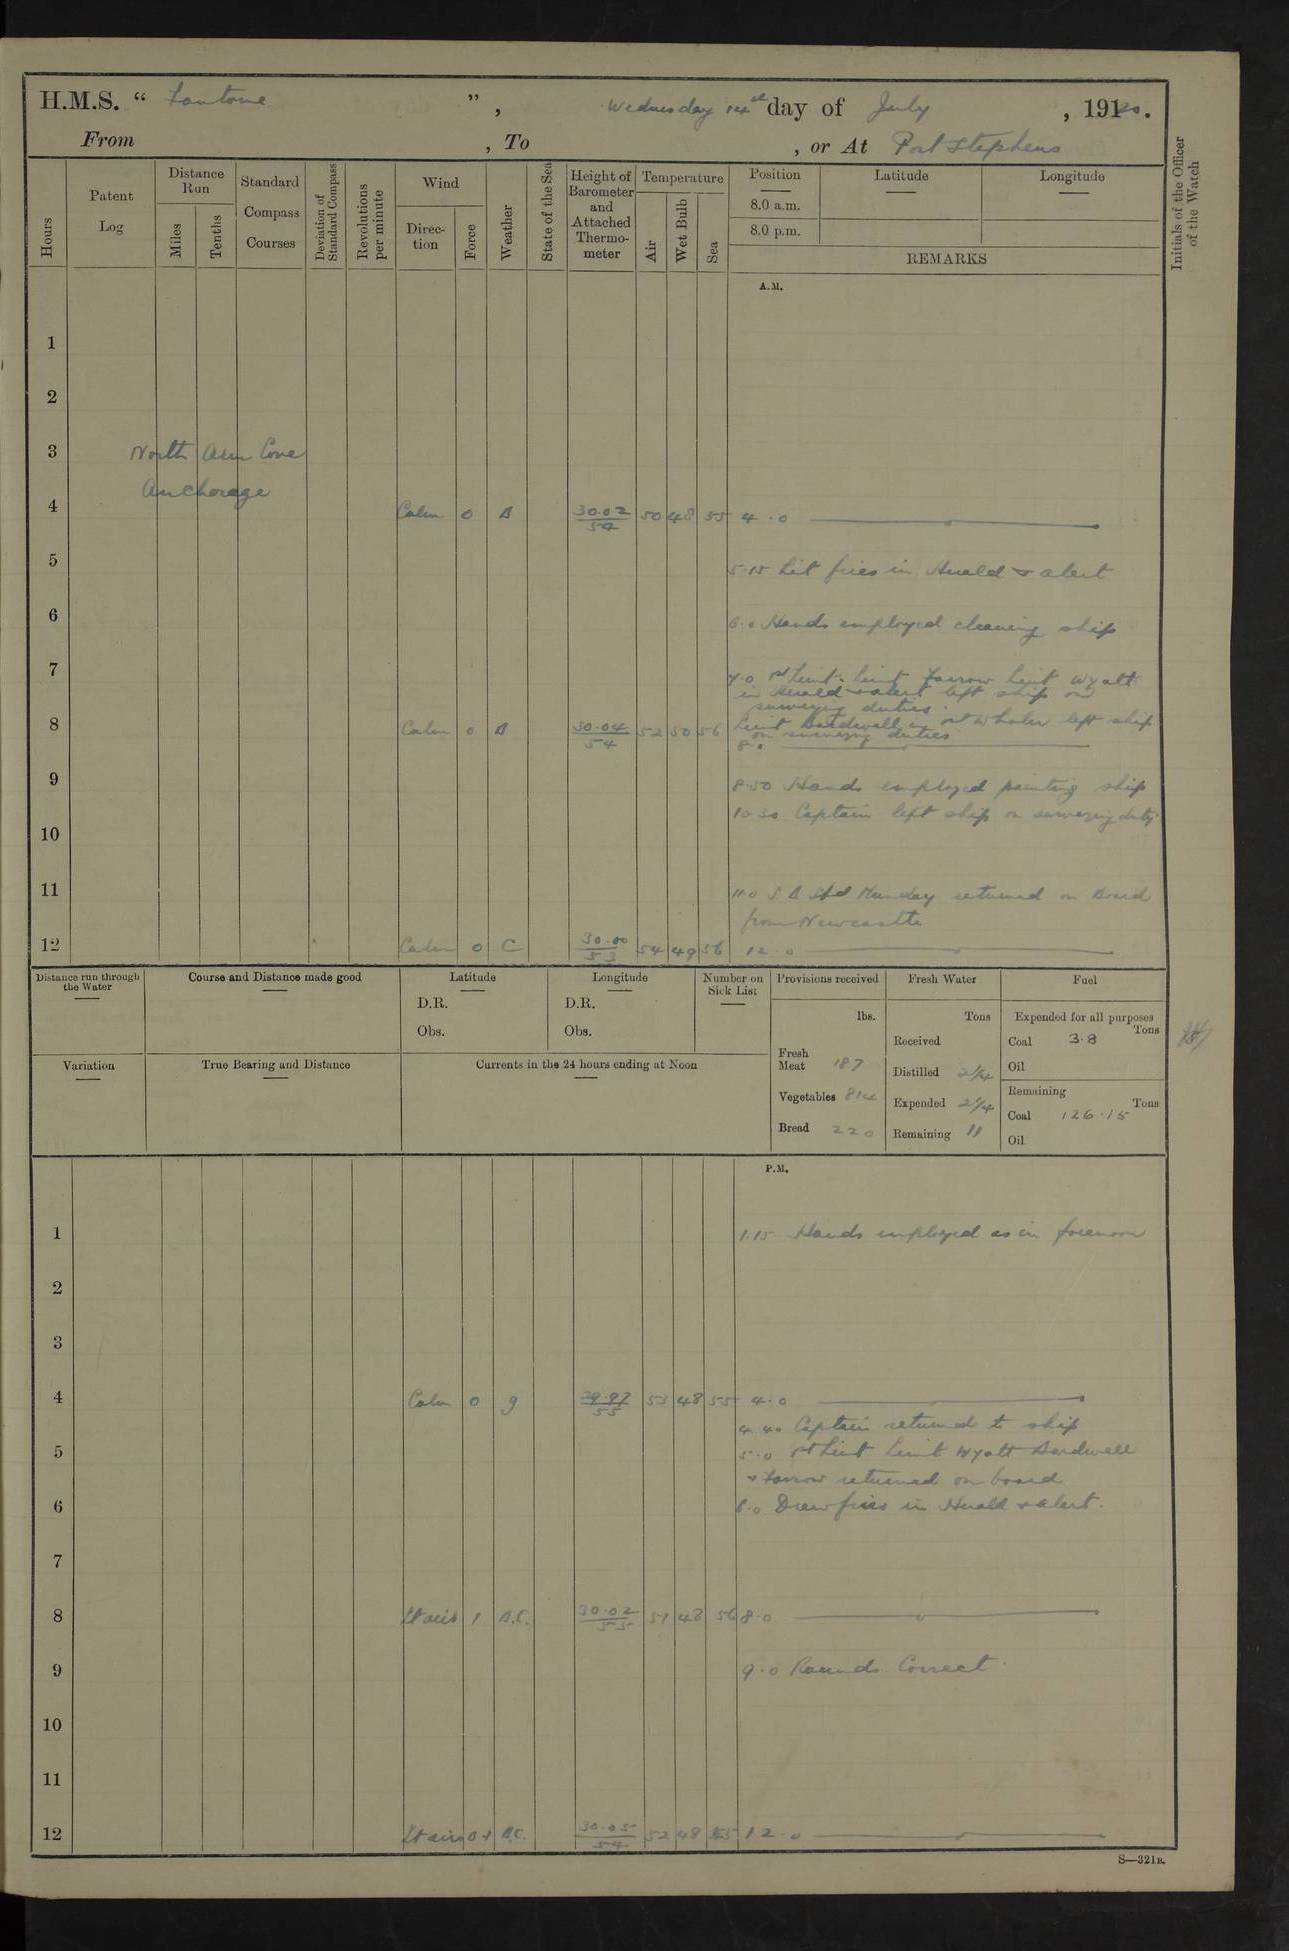 H.M.S. “ Fantome ” , Wednesday 14th day of July , 1920 .
From , To , or At Port Stephens
Hours
Patent Log
Distance Run
Miles
Tenths
Standard Compass Courses
Deviation of Standard Compass
Revolutions per minute
Wind
Direc-tion
Force
Weather
State of the Sea
Height of Barometer and Attached Thermo-meter
Temperature
Air
Wet Bulb
Sea
Position
8.0 a.m.
8.0 p.m.
Latitude
Longitude
REMARKS
Initials of the Officer of the Watch
A.M.
1
2
3 North Arm Cove
Anchorage
4 Calm 0 B 30.02 54 50 48 55 4.0
5 5.15 Lit fires in Herald & Alert
6 6.0 Hands employed cleaning ship
7 7.0 1st Lieut. Lieut Farrow Lieut Wyatt
in Herald & Alert left ship on
surveying duties.
8 Calm 0 B 30.04 54 52 50 56 Lieut Bardwell in whaler left ship
on surveying duties
8.0
9 8.50 Hands employed painting ship
10.30 Captain left ship on surveying duty
10
11 11.0 S B Std Munday returned on Board
from Newcastle
12 Calm 0 C 30.00 53 54 49 56 12.0
Distance run through the Water
Course and Distance made good
Latitude
D.R.
Obs.
Longitude
D.R.
Obs.
Number on Sick List
Provisions received
lbs.
Fresh Meat 187
Vegetables 814
Bread 220
Fresh Water
Tons
Received
Distilled 2¼
Expended 2¼
Remaining 11
Fuel
Expended for all purposes
Tons
Coal 3.8
Oil
Remaining
Tons
Coal 126.15
Oil
Variation
True Bearing and Distance
Currents in the 24 hours ending at Noon
P.M.
1 1.15 Hands employed as in forenoon
2
3
4 Calm 0 g 29.97 55 53 48 55 4.0
4.40 Captain returned to ship
5 5.0 1st Lieut Lieut Wyatt Bardwell
& Farrow returned on board
6 6.0 Drew fires in Herald & Alert.
7
8 Lt airs 1 B.C. 30.02 55 51 48 56 8.0
9 9.0 Rounds Correct.
10
11
12 Lt airs 0-1 B.C. 30.05 54 52 48 55 12.0
S—321B.